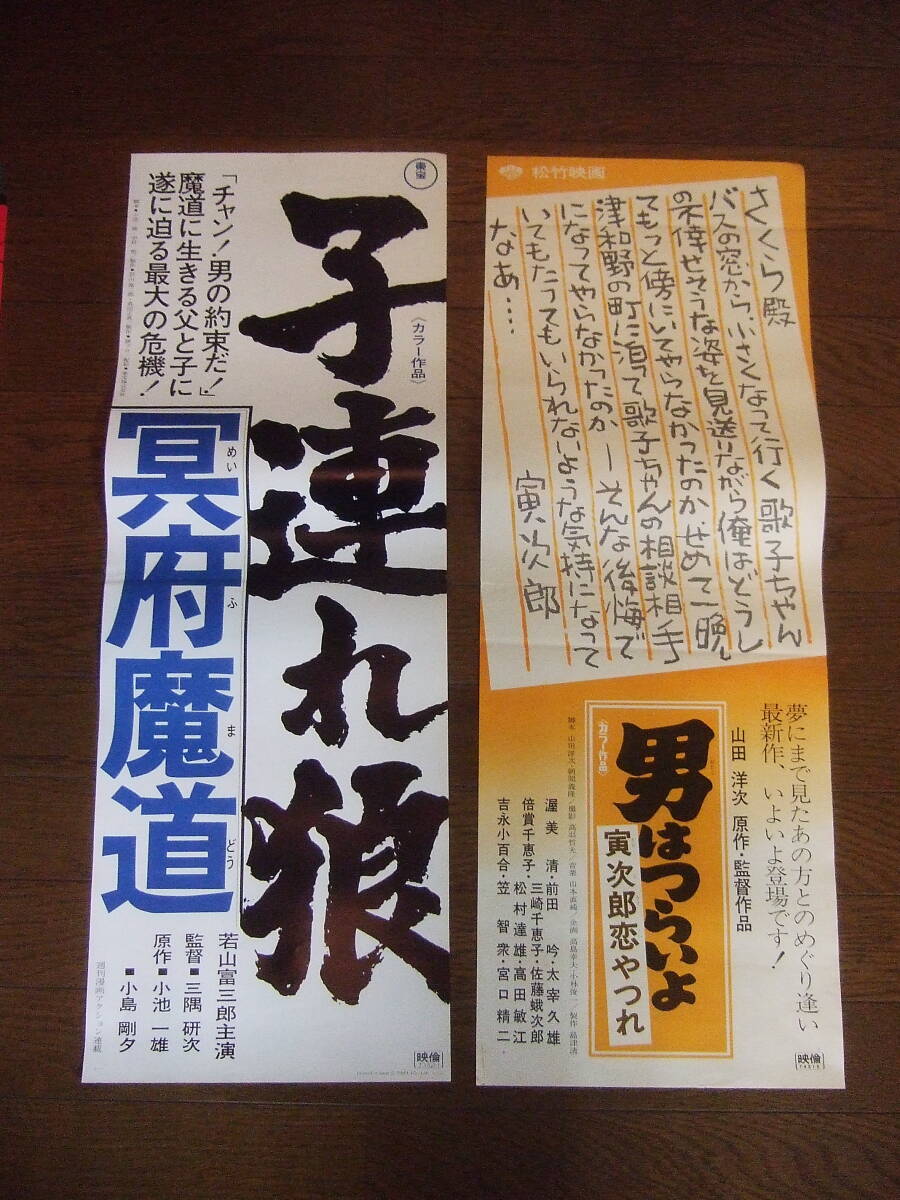 東宝
子連れ狼
〈カラー作品〉
「チャン！男の約束だ！」
魔道に生きる父と子に
遂に迫る最大の危機！
冥府魔道
めい
ふ
ま
どう
若山富三郎主演
監督■三隅 研次
原作■小池 一雄
■小島 剛夕
週刊漫画アクション連載
[映倫]
松竹映画
さくら殿
バスの窓から、小さくなって行く歌子ちゃん
の不倖せそうな姿を見送りながら俺はどうし
てもっと傍にいてやらなかったのか せめて一晩
津和野の町に泊って歌子ちゃんの相談相手
になってやらなかったのか ー そんな後悔で
いてもたってもいられないような気持になって
なあ‥‥
寅次郎
夢にまで見たあの方とのめぐり逢い
最新作、いよいよ登場です！
山田 洋次 原作・監督作品
男はつらいよ
寅次郎恋やつれ
〈カラー作品〉
脚本 山田洋次・朝間義隆／撮影 高羽哲夫／音楽 山本直純／企画 高島幸夫・小林俊一／製作 島津清
渥美 清・前田 吟・太宰久雄
倍賞千恵子・三崎千恵子・佐藤蛾次郎
松村達雄・高田敏江
吉永小百合・笠 智衆・宮口精二
[映倫]